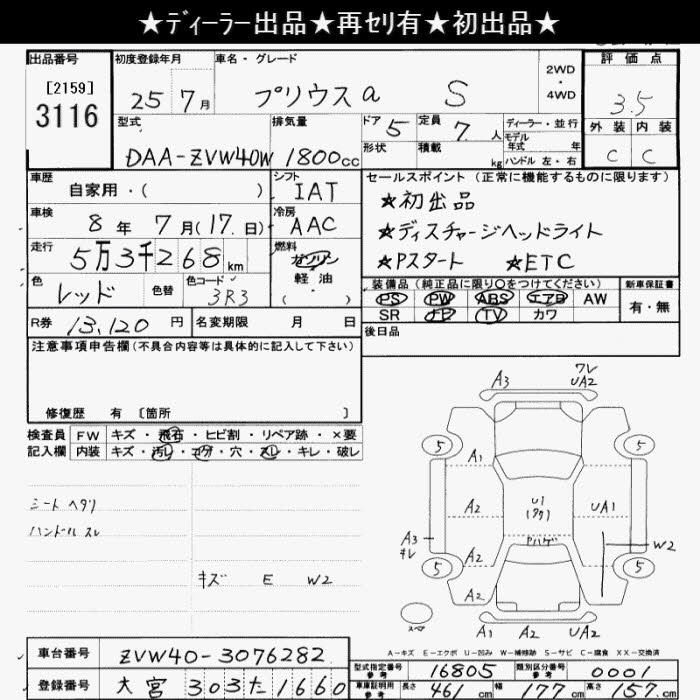 ★ディーラー出品★再セリ有★初出品★
出品番号
[2159]
3116
初度登録年月
25年7月
車名・グレード
プリウスα S
2WD
・
4WD
評価点
3.5
外装 内装
C C
型式
DAA-ZVW40W
排気量
1800cc
ドア
5
形状
定員
7人
積載
kg
ディーラー・並行
モデル
年式 年
ハンドル 左・右
車歴
自家用・( )
シフト
IAT
車検
8年7月(17日)
冷房
AAC
走行
5万3千268km
燃料
ガソリン
軽油
( )
色
レッド
色替
色コード
3R3
R券
13,120円
名変期限 月 日
セールスポイント(正常に機能するものに限ります)
★初出品
★ディスチャージヘッドライト
★Pスタート ★ETC
装備品(純正品に限り○をつけてください)
PS PW ABS エアB AW
SR ナビ TV カワ
新車保証書
有・無
後日品
注意事項申告欄(不具合内容等は具体的に記入して下さい)
修復歴 有〔箇所 〕
検査員
記入欄
FW キズ・飛石・ヒビ割・リペア跡・×要
内装 キズ・汚レ・コゲ・穴・スレ・キレ・破レ
シートヘタリ
ハンドルスレ
キズ E W2
A3
ワレ
UA2
5
5
A1
A2
U1
UA1
A3
キレ
W2
A2
Pハゲ
5
5
A2
A2
スペア
A1 A2 UA2
A-キズ E-エクボ U-凹み W-補修跡 S-サビ C-腐食 XX-交換済
車台番号
ZVW40-3076282
登録番号
大宮 303 た 1660
型式指定番号
参考
16805
類別区分番号
参考
0001
車庫証明用
参考
長さ 461cm 幅 177cm 高さ 157cm